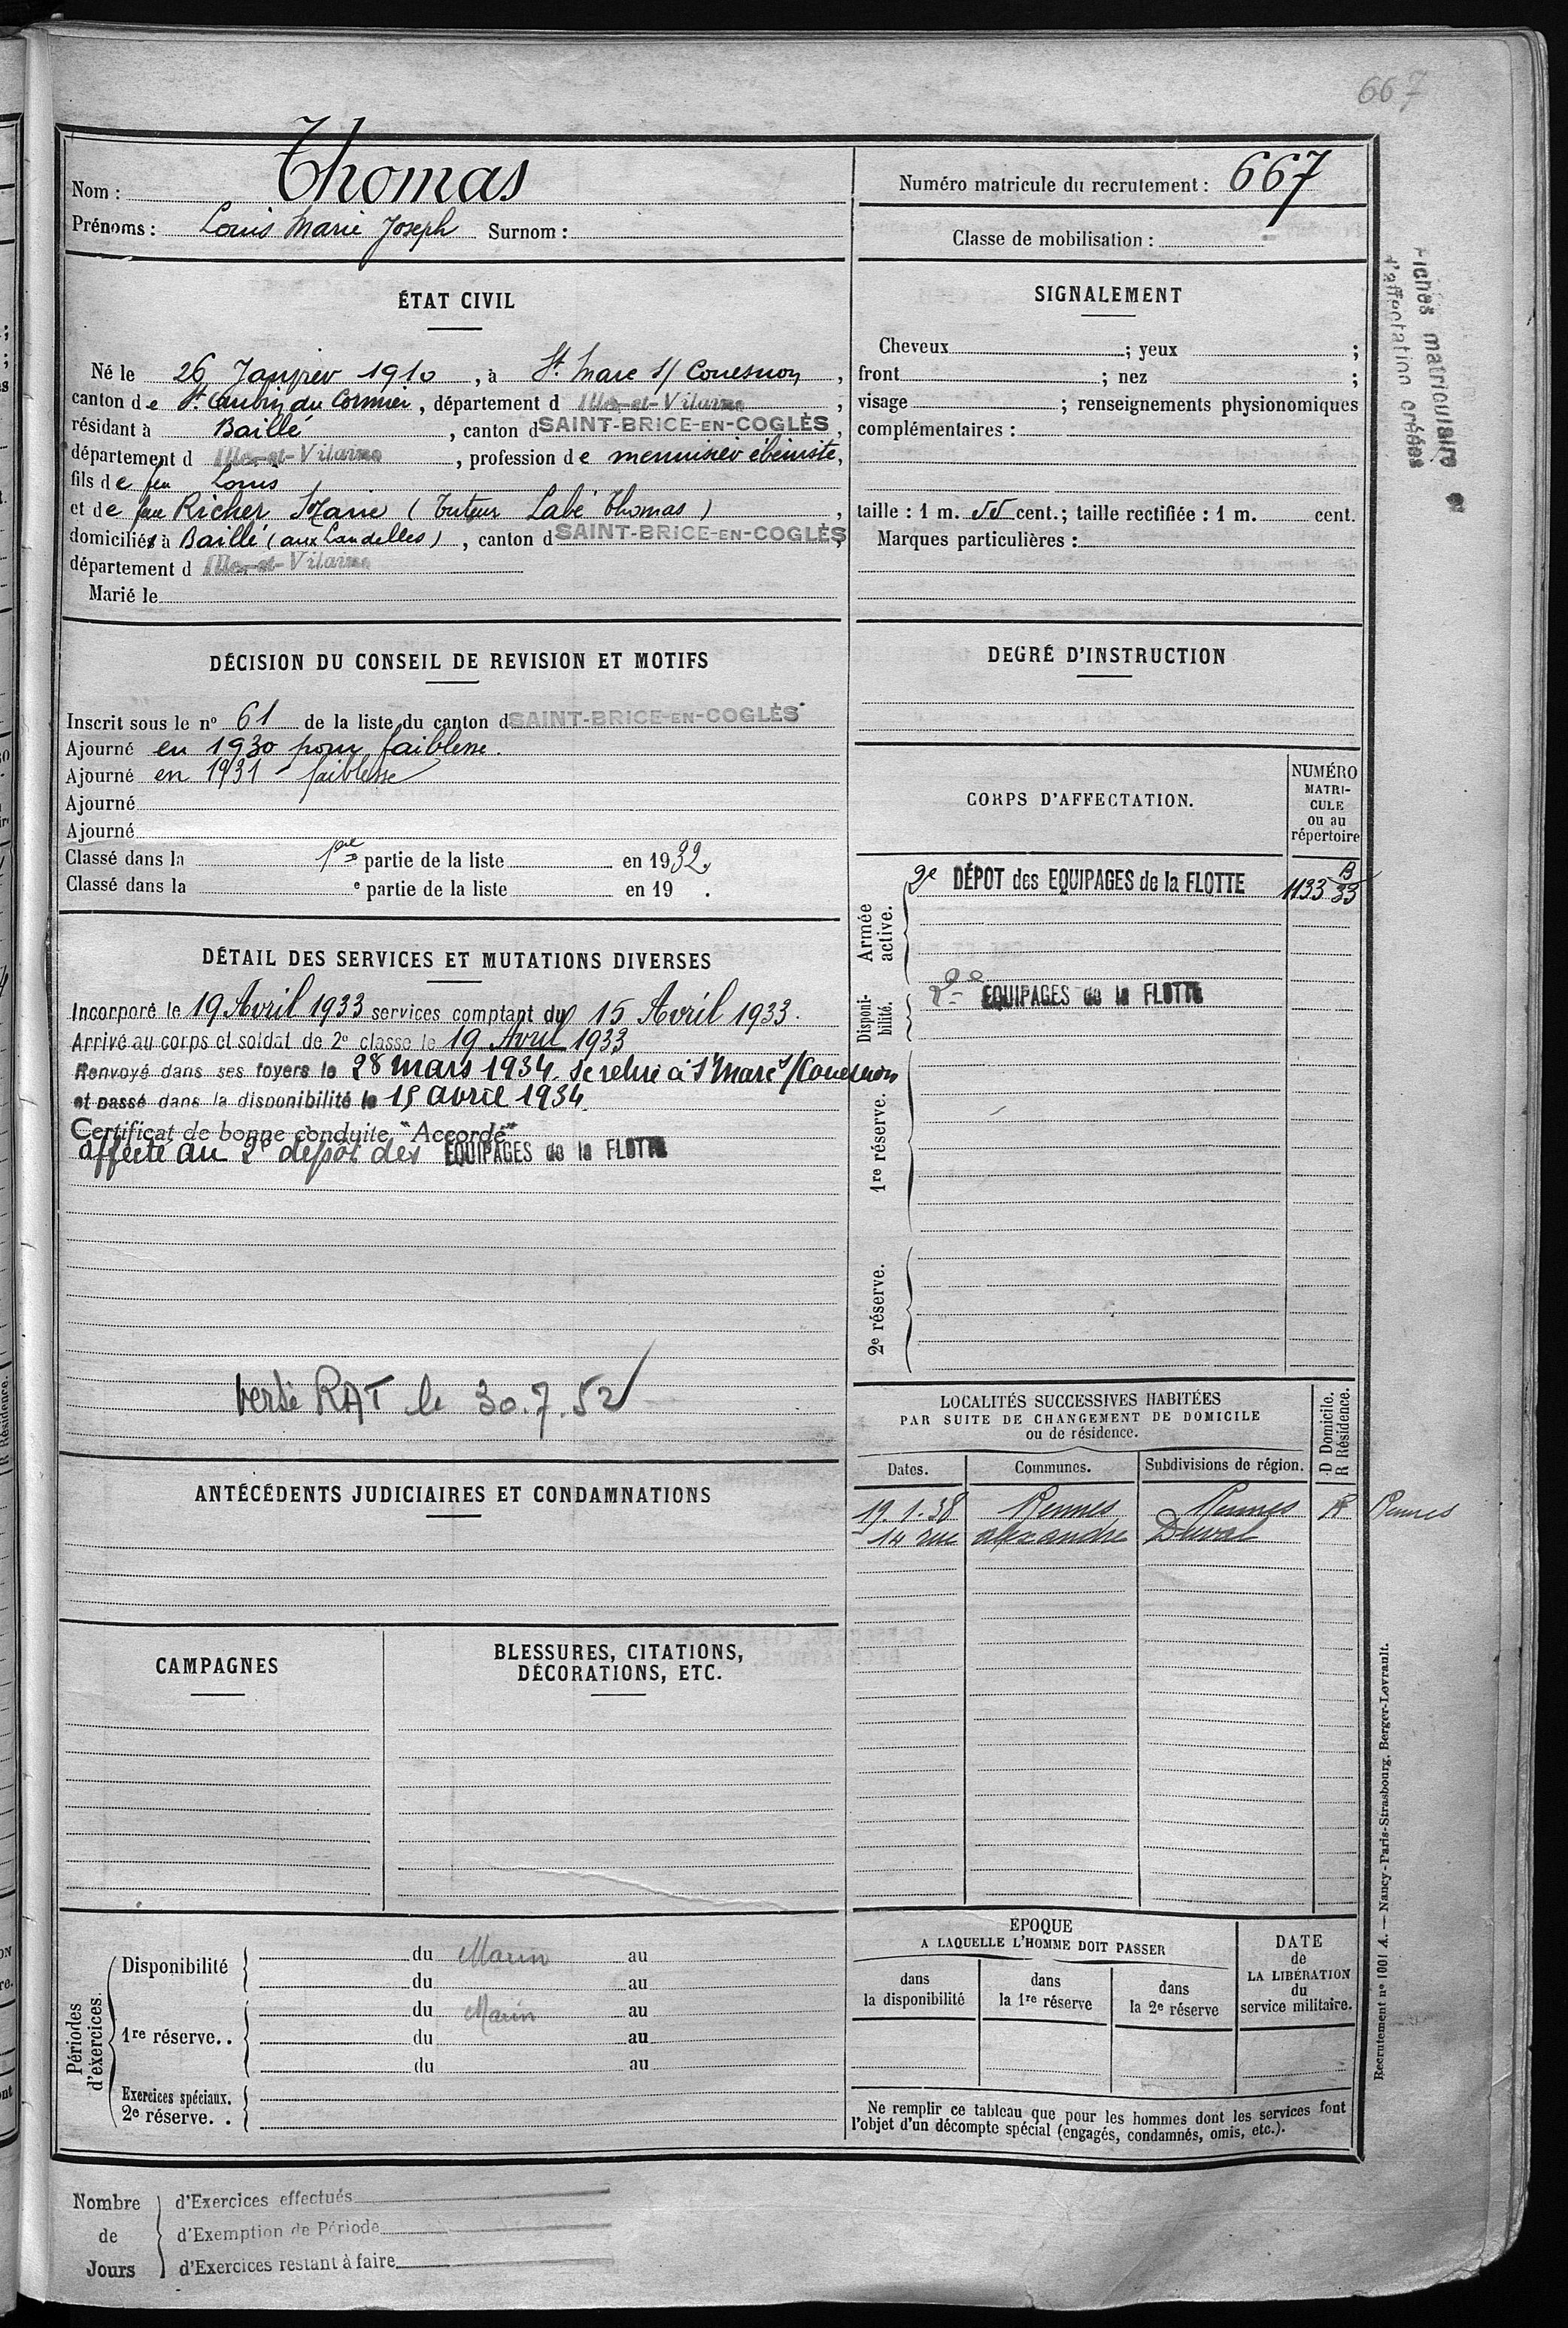 667
Nom : Thomas
Prénoms : Louis Marie Joseph Surnom :
Numéro matricule du recrutement : 667
Classe de mobilisation :
ÉTAT CIVIL
Né le 26 Janvier 1910, à St Marc s/ Couesnon,
canton de St Aubin du Cormier, département d Ille-et-Vilaine,
résidant à Baillé, canton d SAINT-BRICE-EN-COGLÈS,
département d Ille-et-Vilaine, profession de menuisier ébéniste,
fils de feu Louis
et de feu Richer Marie (Tuteur Labé Thomas),
domiciliés à Baillé (aux Landelles), canton d SAINT-BRICE-EN-COGLÈS,
département d Ille-et-Vilaine
Marié le
SIGNALEMENT
Cheveux ; yeux ;
front ; nez ;
visage ; renseignements physionomiques
complémentaires :
taille : 1 m. 55 cent.; taille rectifiée : 1 m. cent.
Marques particulières :
Fiches matriculaire
d'affectation créées
DÉCISION DU CONSEIL DE REVISION ET MOTIFS
Inscrit sous le nº 61 de la liste du canton d SAINT-BRICE-EN-COGLÈS
Ajourné en 1930 pour faiblesse.
Ajourné en 1931 - faiblesse
Ajourné
Ajourné
Classé dans la 1ère partie de la liste en 1932.
Classé dans la e partie de la liste en 19 .
DEGRÉ D'INSTRUCTION
CORPS D'AFFECTATION.
NUMÉRO
MATRI-
CULE
ou au
répertoire
Armée active.
2e DÉPOT des EQUIPAGES de la FLOTTE 1133 B 33
Disponibilité.
2e EQUIPAGES de la FLOTTE
1re réserve.
2e réserve.
DÉTAIL DES SERVICES ET MUTATIONS DIVERSES
Incorporé le 19 Avril 1933 services comptant du 15 Avril 1933.
Arrivé au corps et soldat de 2e classe le 19 Avril 1933
Renvoyé dans ses foyers le 28 mars 1934. Se retire à St Marc s/Couesnon
et passé dans la disponibilité le 15 avril 1934.
Certificat de bonne conduite "Accordé"
affecté au 2e dépôt des EQUIPAGES de la FLOTTE
versé RAT le 30.7.52
LOCALITÉS SUCCESSIVES HABITÉES
PAR SUITE DE CHANGEMENT DE DOMICILE
ou de résidence.
D Domicile.
R Résidence.
Dates. Communes. Subdivisions de région.
19.1.38 Rennes Rennes R Rennes
14 rue alexandre Duval
ANTÉCÉDENTS JUDICIAIRES ET CONDAMNATIONS
CAMPAGNES
BLESSURES, CITATIONS,
DÉCORATIONS, ETC.
Périodes d'exercices.
Disponibilité
du Marin au
du au
1re réserve..
du Marin au
du au
du au
Exercices spéciaux.
2e réserve. .
EPOQUE
A LAQUELLE L'HOMME DOIT PASSER
dans
la disponibilité
dans
la 1re réserve
dans
la 2e réserve
DATE
de
LA LIBÉRATION
du
service militaire.
Ne remplir ce tableau que pour les hommes dont les services font
l'objet d'un décompte spécial (engagés, condamnés, omis, etc.).
Recrutement nº 1001 A. — Nancy-Paris-Strasbourg, Berger-Levrault.
Nombre
de
Jours
d'Exercices effectués
d'Exemption de Période
d'Exercices restant à faire